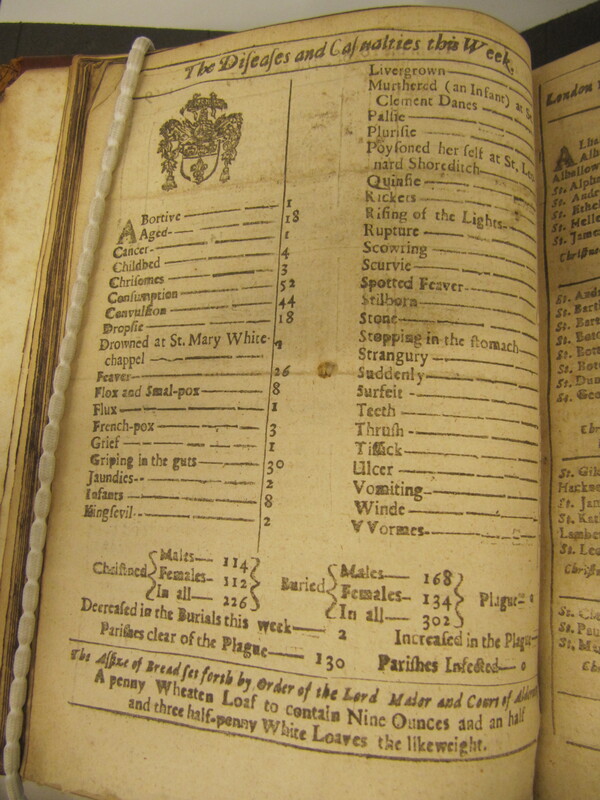 The Diſeaſes and Caſualties this Week.
Abortive — 1
Aged — 18
Cancer — 1
Childbed — 4
Chriſomes — 3
Conſumption — 52
Convulſion — 44
Dropſie — 18
Drowned at St. Mary White-
chappel —
Feaver — 26
Flox and Smal-pox — 8
Flux — 1
French-pox — 3
Grief — 1
Griping in the guts — 30
Jaundies — 2
Infants — 8
Kingſevil — 2
Livergrown —
Murthered (an Infant) at
Clement Danes —
Palſie —
Pluriſie —
Poyſoned her ſelf at St.
nard Shoreditch —
Quinſie —
Rickets —
Riſing of the Lights —
Rupture —
Scowring —
Scurvie —
Spotted Feaver —
Stilborn —
Stone —
Stopping in the ſtomach —
Strangury —
Suddenly —
Surfeit —
Teeth —
Thruſh —
Tiſſick —
Ulcer —
Vomiting —
Winde —
VVormes —
Chriſtned { Males — 114 Females — 112 In all — 226 }
Buried { Males — 168 Females — 134 In all — 302 } Plague
Decreaſed in the Burials this week — 2
Increaſed in the Plague
Pariſhes clear of the Plague — 130
Pariſhes Infected — 0
The Aſſize of Bread ſet forth by Order of the Lord Maior and Court of
A penny Wheaten Loaf to contain Nine Ounces and an half
and three half-penny White Loaves the likeweight.
London
St.
St.
St.